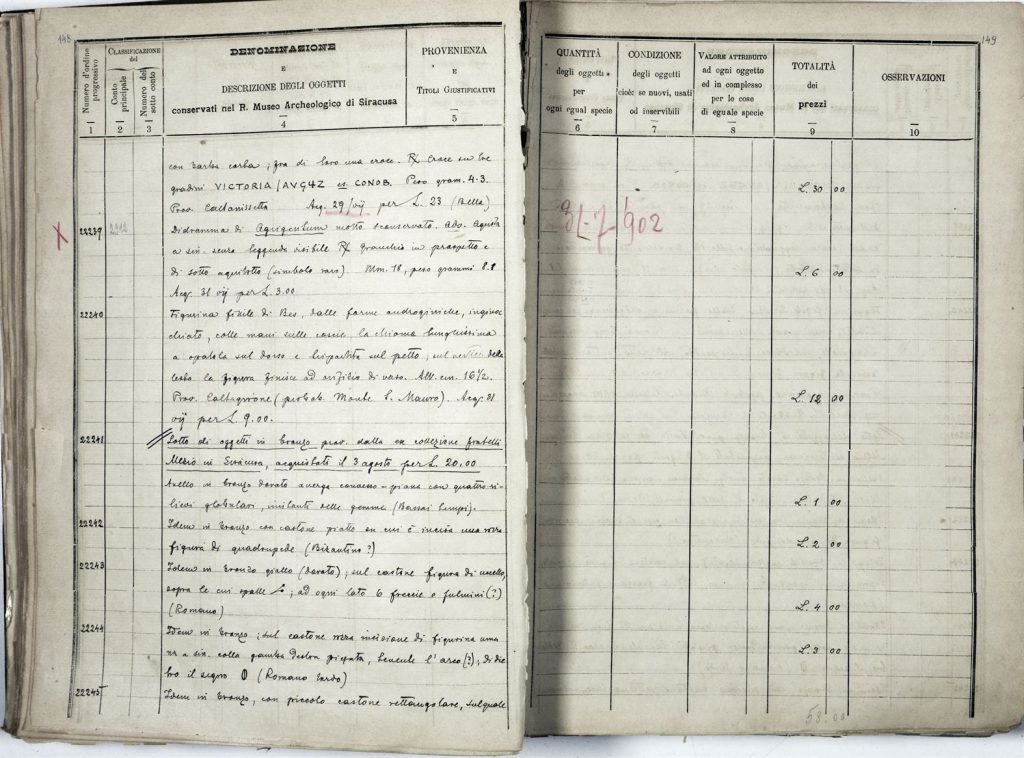 148
Numero d'ordine progressivo
CLASSIFICAZIONE del
Conto principale
Numero del sotto conto
DENOMINAZIONE
E
DESCRIZIONE DEGLI OGGETTI
conservati nel R. Museo Archeologico di Siracusa
PROVENIENZA
E
TITOLI GIUSTIFICATIVI
1 2 3 4 5
con barba corta; fra di loro una croce. R) Croce su tre
gradini VICTORIA/AVGYZ CONOB. Peso gram. 4.3.
Prov. Caltanissetta Acq. 29/vij per L. 23 (Bella)
22239 2212 Didramma di Agrigentum molto sconservato. Aquila
a sin. senza leggenda visibile R) Granchio in prospetto e
di sotto aquilotto (simbolo raro). Mm. 18, peso grammi 8.8
Acq. 31 vij per L. 3.00
22240 Figurina fittile di Bes, dalle forme androginiche, inginoc
chiato, colle mani sulle coscie, la chioma lunghissima
a spatola sul dorso e tripartita sul petto; sul vertice della
testa la figura finisce ad orifizio di vaso. Alt. cm. 16½.
Prov. Caltagirone (probab. Monte S. Mauro). Acq. 31
vij per L. 9.00.
22241 Lotto di oggetti in bronzo prov. dalla ex collezione fratelli
in Siracusa, acquistati il 3 agosto per L. 20.00
Anello in bronzo dorato a verga convesso-piana con quattro ri-
lievi globulari, imitanti delle gemme (Bassi tempi).
22242 Idem in bronzo con castone piatto su cui è incisa una rozza
figura di quadrupede (Bizantino?)
22243 Idem in bronzo giallo (dorato); sul castone figura di uccello,
sopra le cui spalle; ad ogni lato 6 freccie o fulmini (?)
(Romano)
22244 Idem in bronzo; sul castone rozza incisione di figurina uma
na a sin. colla gamba destra piegata, tenente l'arco (?); di die
tro il segno 0 (Romano tardo)
22245 Idem in bronzo, con piccolo castone rettangolare, sul quale
149
QUANTITÀ
degli oggetti
per
ogni egual specie
CONDIZIONE
degli oggetti
cioè: se nuovi, usati
od inservibili
VALORE ATTRIBUITO
ad ogni oggetto
ed in complesso
per le cose
di eguale specie
TOTALITÀ
dei
prezzi
OSSERVAZIONI
6 7 8 9 10
L. 30 00
31-7-902
L. 6 00
L. 12 00
L. 1 00
L. 2 00
L. 4 00
L. 3 00
58.00